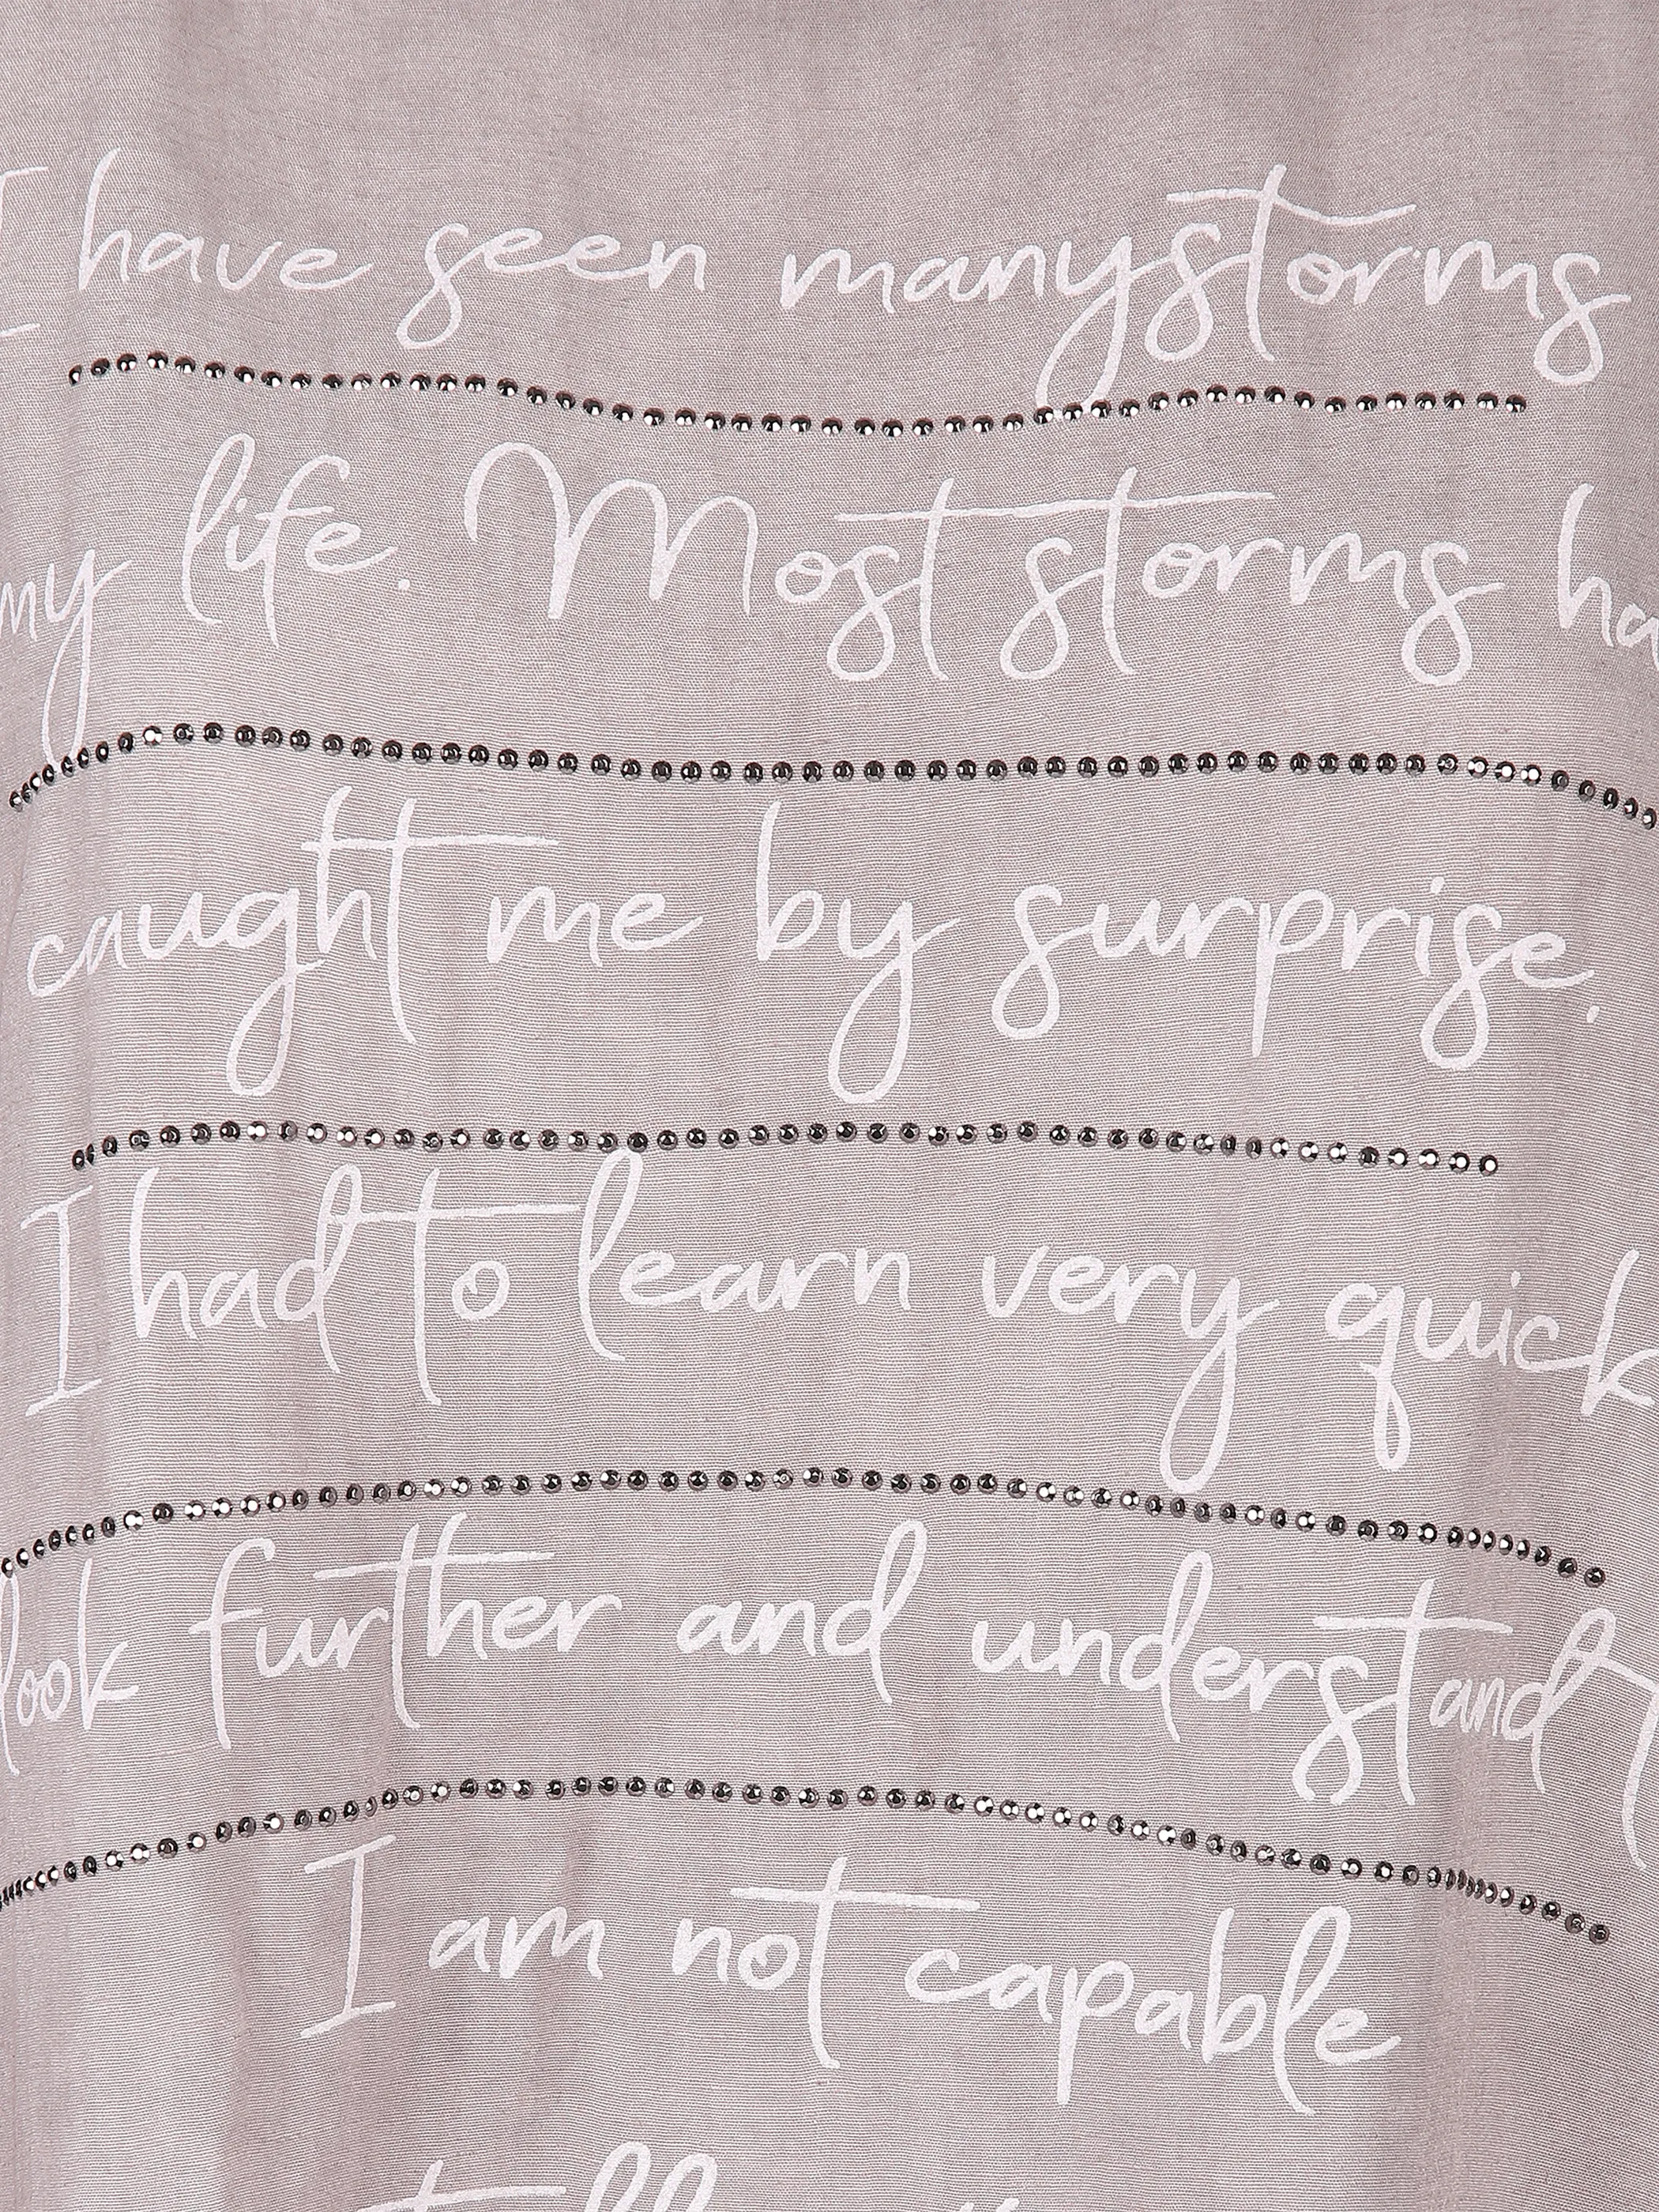 I have seen many storms
my life. Most storms ha
caught me by surprise.
I had to learn very quick
look further and understand t
I am not capable